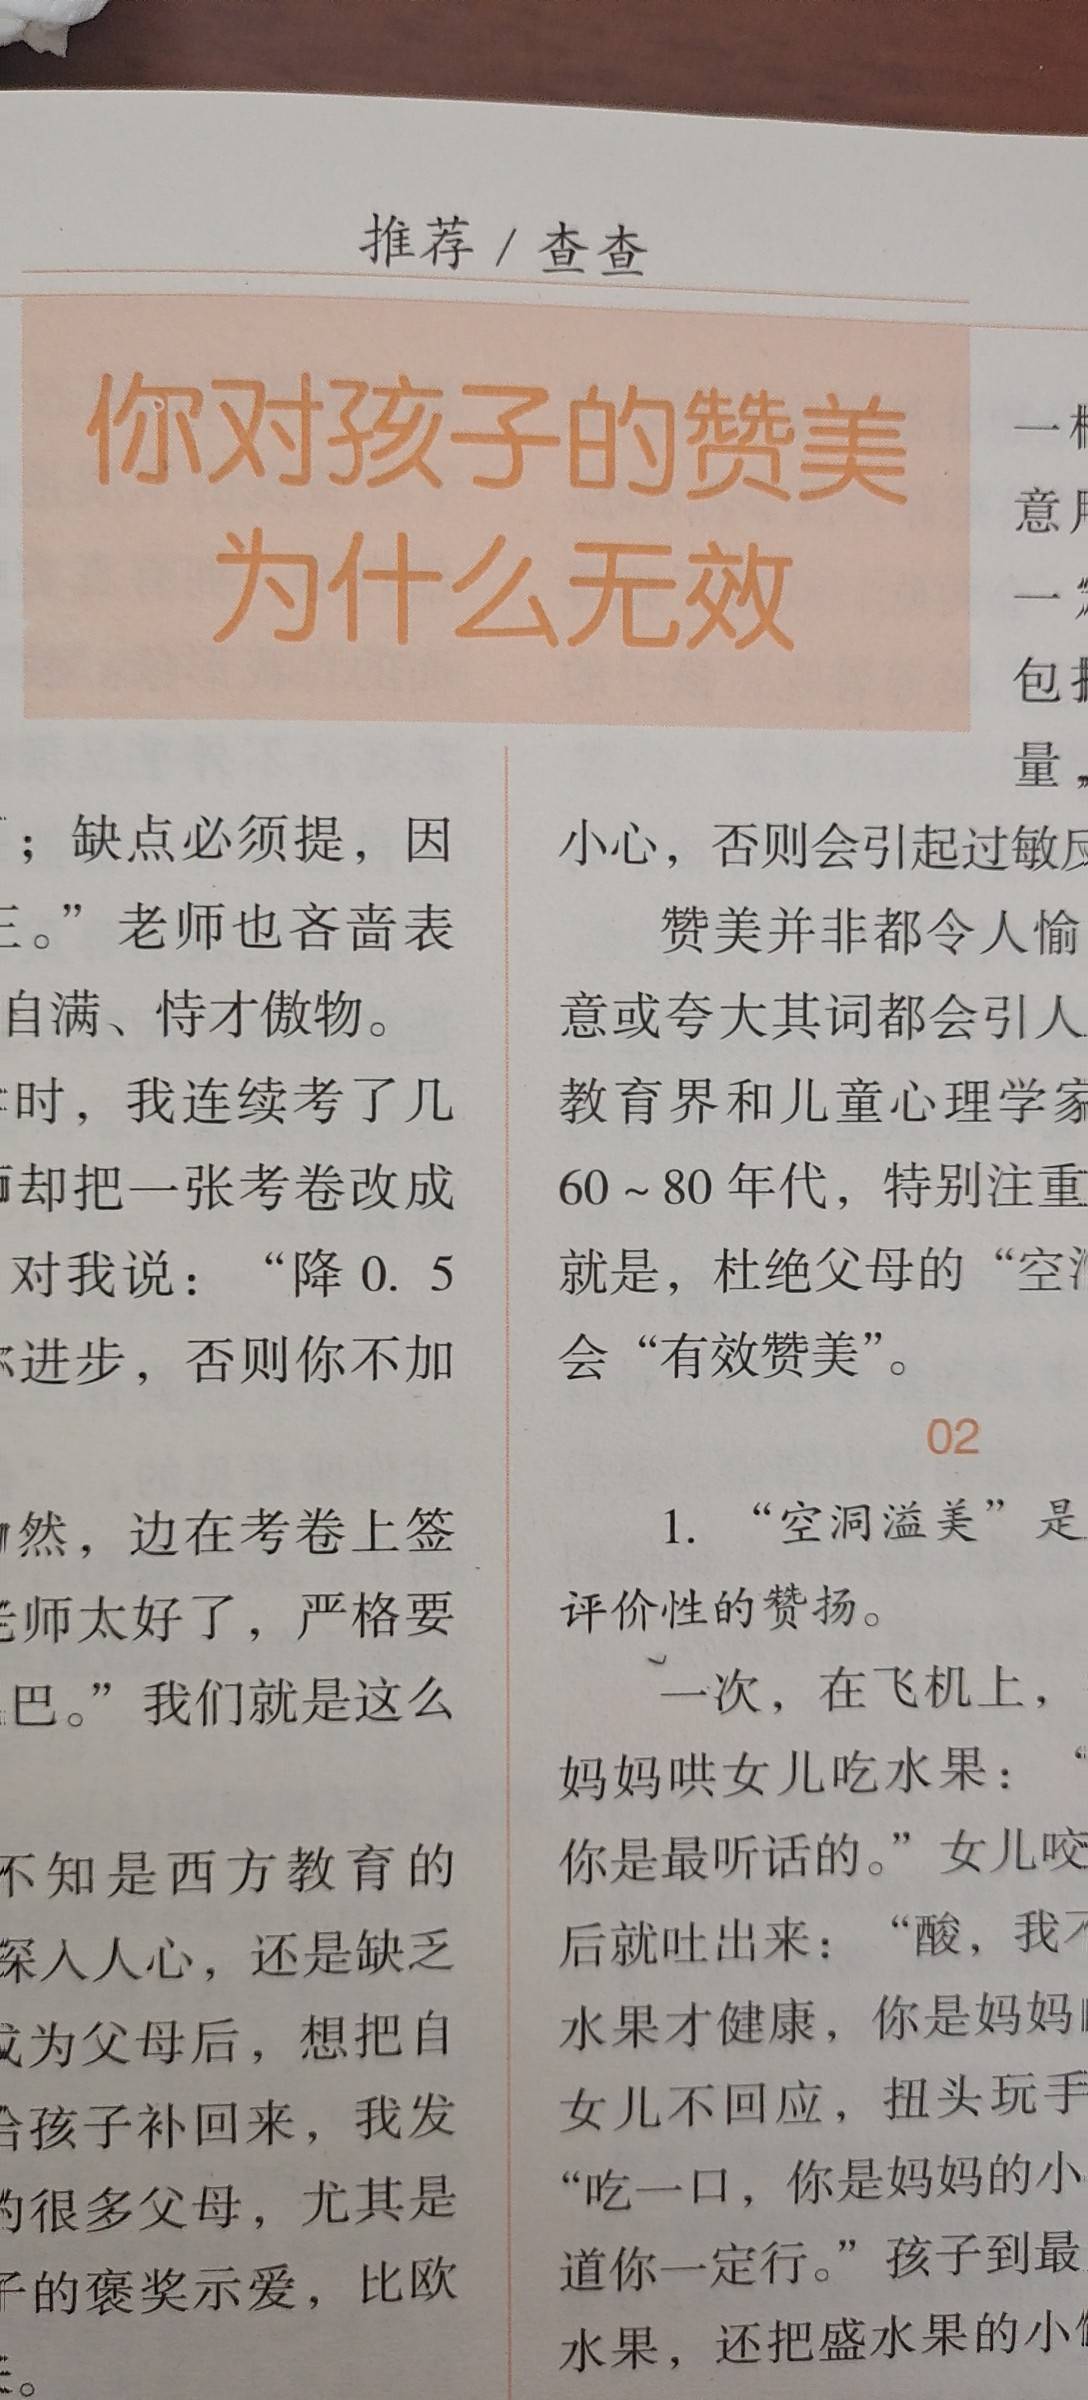 推荐 / 查查
你对孩子的赞美
为什么无效
；缺点必须提，因
。”老师也吝啬表
自满、恃才傲物。
时，我连续考了几
却把一张考卷改成
对我说：“降 0. 5
进步，否则你不加
然，边在考卷上签
师太好了，严格要
巴。”我们就是这么
不知是西方教育的
深入人心，还是缺乏
成为父母后，想把自
给孩子补回来，我发
的很多父母，尤其是
子的褒奖示爱，比欧
。
一
意
一
包
量，
小心，否则会引起过敏反
赞美并非都令人愉
意或夸大其词都会引人
教育界和儿童心理学家
60 ~ 80 年代，特别注重
就是，杜绝父母的“空洞
会“有效赞美”。
02
1. “空洞溢美”是
评价性的赞扬。
一次，在飞机上，
妈妈哄女儿吃水果：“
你是最听话的。”女儿咬
后就吐出来：“酸，我不
水果才健康，你是妈妈
女儿不回应，扭头玩手
“吃一口，你是妈妈的小
道你一定行。”孩子到最
水果，还把盛水果的小